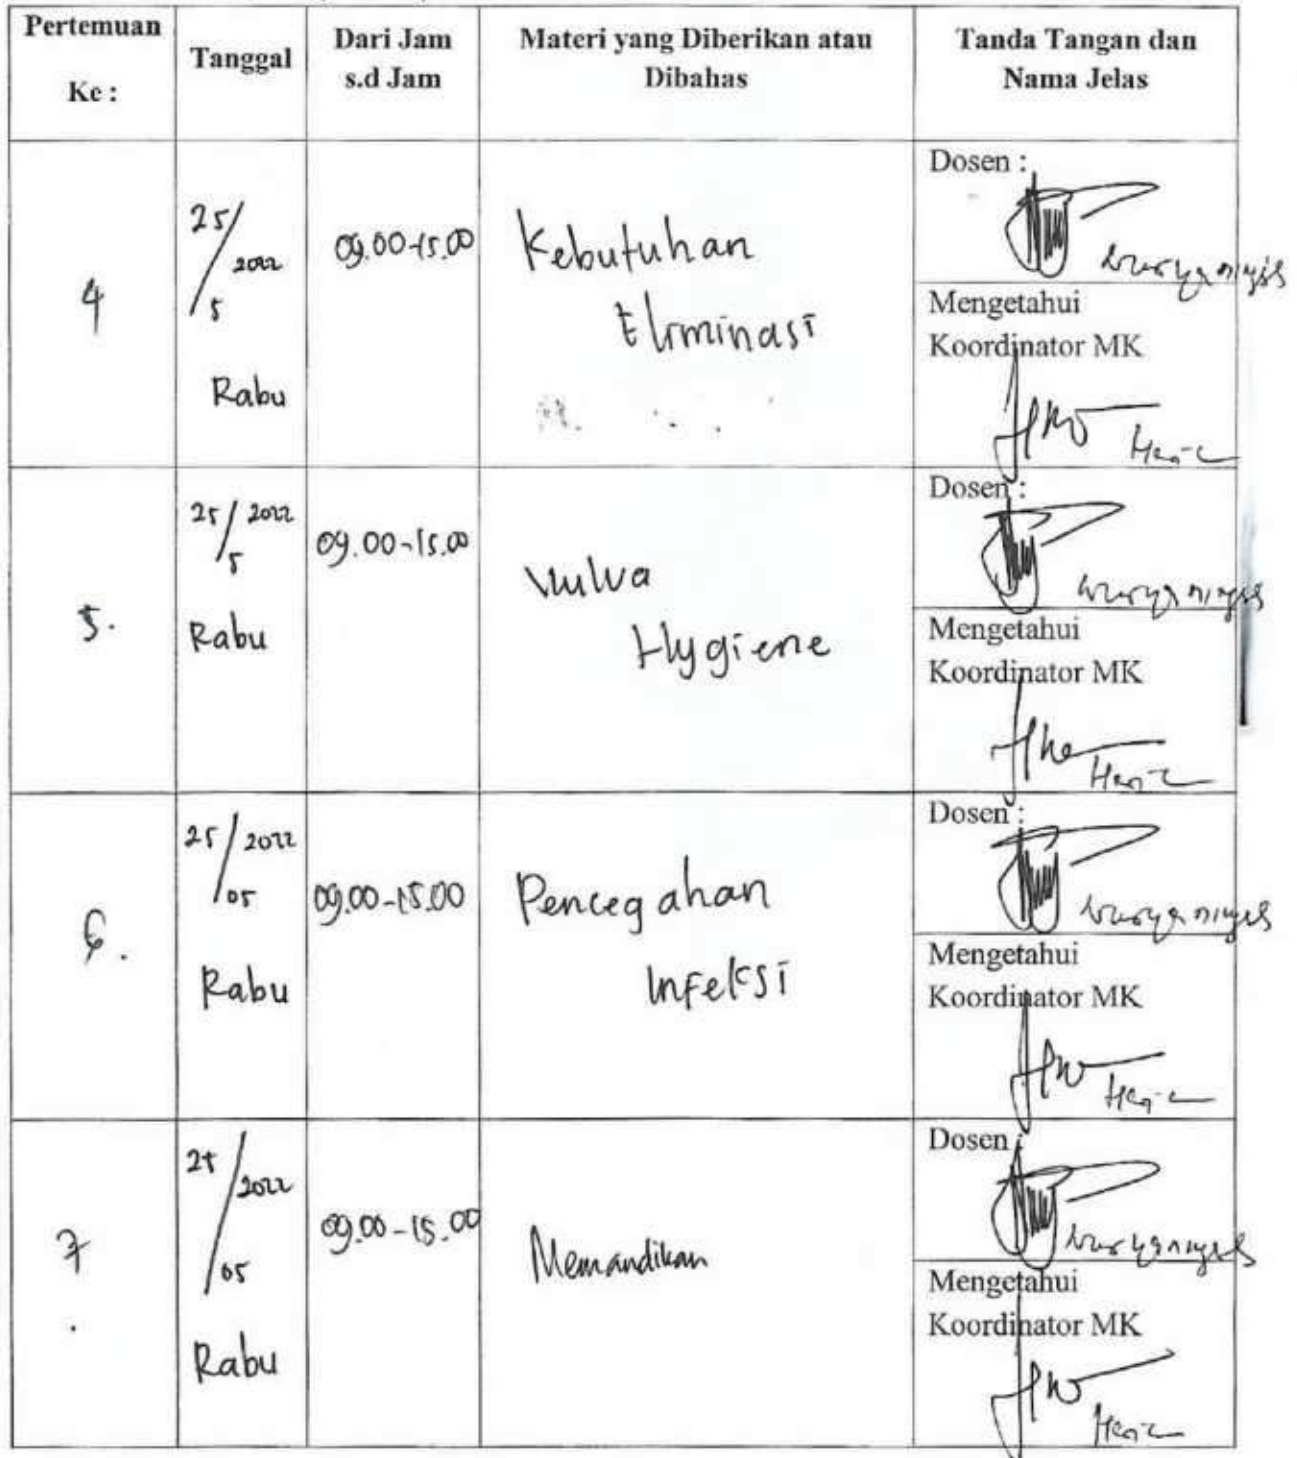 Pertemuan
Ke :
Tanggal
Dari Jam
s.d Jam
Materi yang Diberikan atau
Dibahas
Tanda Tangan dan
Nama Jelas
4
25/5 2022
Rabu
09.00-15.00
Kebutuhan
Eliminasi
Dosen :
Mengetahui
Koordinator MK
5.
25/5 2022
Rabu
09.00-15.00
Vulva
Hygiene
Dosen :
Mengetahui
Koordinator MK
6.
25/05 2022
Rabu
09.00-15.00
Pencegahan
Infeksi
Dosen :
Mengetahui
Koordinator MK
7.
25/05 2022
Rabu
09.00-15.00
Memandikan
Dosen :
Mengetahui
Koordinator MK